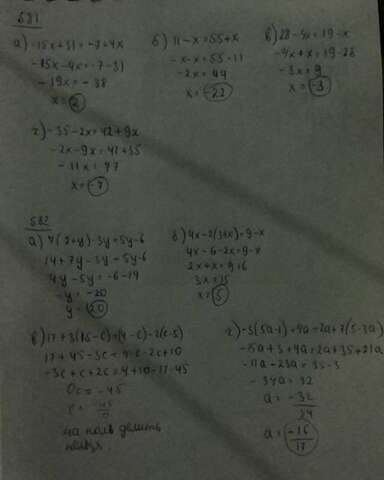 581
а) -15x+31=-7+4x
-15x-4x=-7-31
-19x=-38
x=2
б) 11-x=55+x
-x-x=55-11
-2x=44
x=-22
в) 28-4x=19-x
-4x+x=19-28
-3x=9
x=-3
г) -35-2x=42+9x
-2x-9x=42+35
-11x=77
x=-7
582
а) 7(2+y)-3y=5y-6
14+7y-3y=5y-6
4y-5y=-6-14
-y=-20
y=20
б) 4x-2(3+x)=9-x
4x-6-2x=9-x
2x+x=9+6
3x=15
x=5
в) 17+3(15-c)=(4-c)-2(c-5)
17+45-3c=4-c-2c+10
-3c+c+2c=4+10-17-45
0c=-45
на ноль делить
нельзя.
г) -3(5a-1)+4a=2a+7(5-3a)
-15a+3+4a=2a+35+21a
-11a-23a=35-3
-34a=32
a=-32/34
a=-16/17